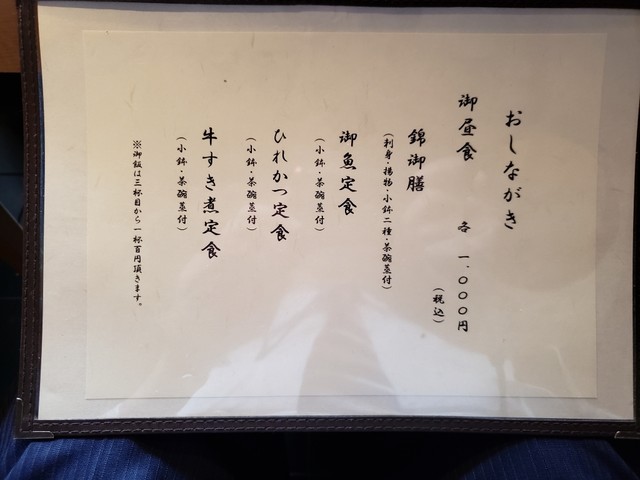 おしながき
御昼食　各　一、〇〇〇円
（税込）
錦御膳
（刺身・揚物・小鉢二種・茶碗蒸付）
御魚定食
（小鉢・茶碗蒸付）
ひれかつ定食
（小鉢・茶碗蒸付）
牛すき煮定食
（小鉢・茶碗蒸付）
※御飯は三杯目から一杯百円頂きます。